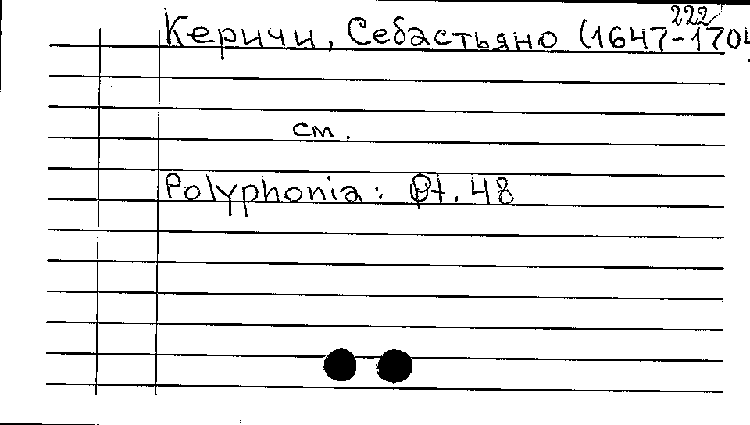 222
Керичи, Себастьяно (1647-1704
см.
Polyphonia: Pt. 48